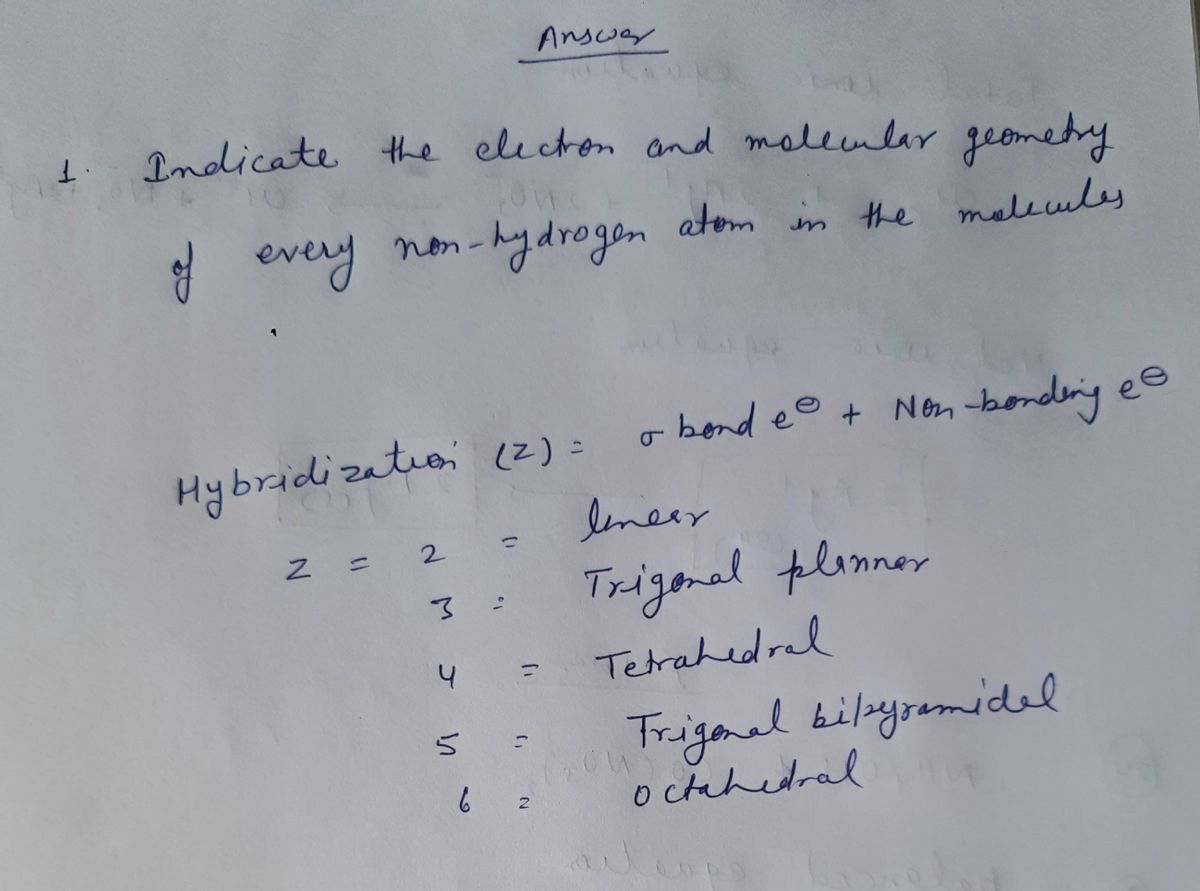 Answer
1. Indicate the electron and molecular geometry
of every non-hydrogen atom in the molecules
Hybridization (Z) = σ bond e⊖ + Non-bonding e⊖
Z = 2 = linear
3 = Trigonal planner
4 = Tetrahedral
5 = Trigonal bipyramidal
6 = octahedral